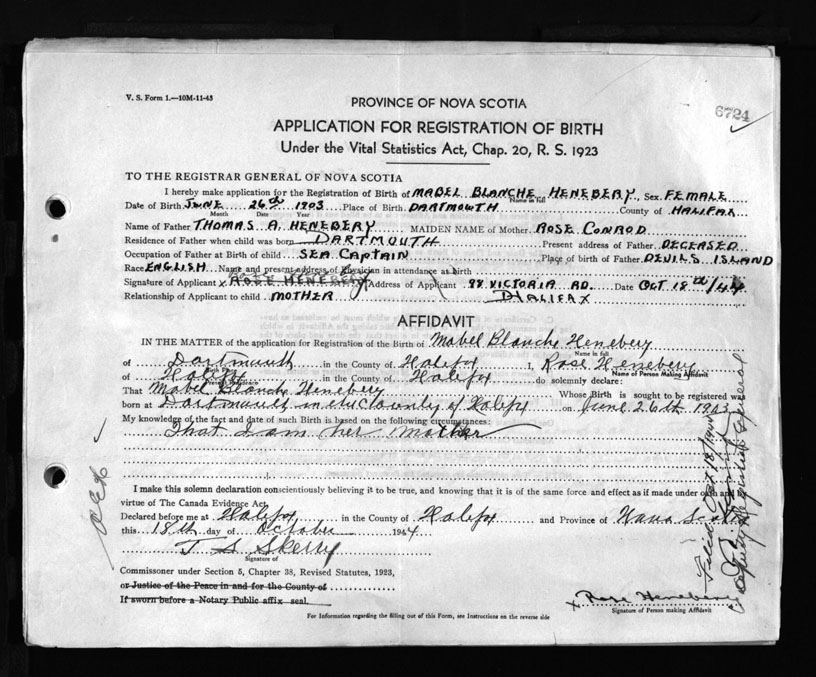 V. S. Form 1.—10M-11-43
PROVINCE OF NOVA SCOTIA
6724
APPLICATION FOR REGISTRATION OF BIRTH
Under the Vital Statistics Act, Chap. 20, R. S. 1923
TO THE REGISTRAR GENERAL OF NOVA SCOTIA
I hereby make application for the Registration of Birth of MABEL BLANCHE HENEBERY, Sex FEMALE
Name in full
Date of Birth JUNE 26th 1903 Place of Birth DARTMOUTH County of HALIFAX
Month Date Year
Name of Father THOMAS A. HENEBERY MAIDEN NAME of Mother ROSE CONROD
Residence of Father when child was born DARTMOUTH Present address of Father DECEASED
Occupation of Father at Birth of child SEA CAPTAIN Place of birth of Father DEVILS ISLAND
Race ENGLISH Name and present address of Physician in attendance at birth
Signature of Applicant x ROSE HENEBERY Address of Applicant 98 VICTORIA RD. Date OCT 18th/44
Relationship of Applicant to child MOTHER HALIFAX
AFFIDAVIT
IN THE MATTER of the application for Registration of the Birth of Mabel Blanche Henebery
Name in full
of Dartmouth in the County of Halifax I, Rose Henebery
Name of Person Making Affidavit
of Halifax in the County of Halifax do solemnly declare:
That Mabel Blanche Henebery Whose Birth is sought to be registered was
born at Dartmouth in the County of Halifax on June 26th 1903
My knowledge of the fact and date of such Birth is based on the following circumstances:
That I am her Mother
I make this solemn declaration conscientiously believing it to be true, and knowing that it is of the same force and effect as if made under oath and by
virtue of The Canada Evidence Act.
Declared before me at Halifax in the County of Halifax and Province of Nova Scotia
this 18th day of October 1944
T S Skerry
Signature of
Commissioner under Section 5, Chapter 38, Revised Statutes, 1923,
or Justice of the Peace in and for the County of
If sworn before a Notary Public affix seal.
x Rose Henebery
Signature of Person making Affidavit
For Information regarding the filling out of this Form, see Instructions on the reverse side
Filed Oct 18/1944
Deputy Registrar General